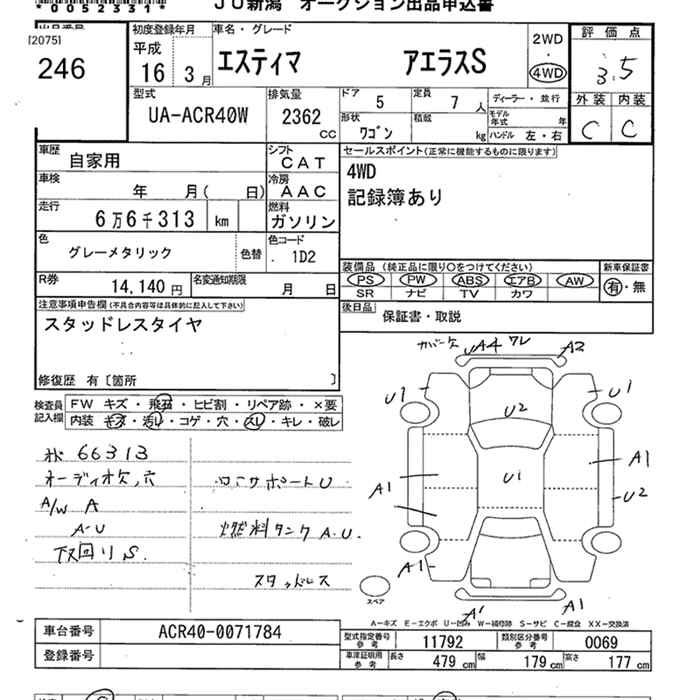 *00052331*
JU新潟 オークション出品申込書
[2075]
246
初度登録年月
平成
16 3月
車名・グレード
エスティマ アエラスS
2WD
・
4WD
評価点
3.5
外装 内装
C C
型式
UA-ACR40W
排気量
2362
cc
ドア
5
定員
7人
形状
ワゴン
積載
kg
ディーラー・並行
モデル年式 年
ハンドル 左・右
車歴
自家用
シフト
CAT
車検
年 月( 日)
冷房
AAC
走行
6万6千313 km
燃料
ガソリン
色
グレーメタリック
色替
色コード
1D2
R券
14,140円
名変通知期限
月 日
セールスポイント(正常に機能するものに限ります)
4WD
記録簿あり
装備品(純正品に限り○をつけてください)
PS PW ABS エアB AW
SR ナビ TV カワ
新車保証書
有・無
後日品
保証書・取説
注意事項申告欄(不具合内容等は具体的に記入して下さい)
スタッドレスタイヤ
修復歴 有〔箇所 〕
検査員記入欄
FW キズ・飛石・ヒビ割・リペア跡・×要
内装 キズ・汚レ・コゲ・穴・スレ・キレ・破レ
66313
オーディオ欠,穴
A/W A
A・U
下回りS.
コアサポートU
燃料タンクA.U.
スタッドレス
カバー欠
UA4 ワレ
A2
U1
U1
U2
A1
U1
A1
U2
A1
A'
A1
スペア
A-キズ E-エクボ U-凹み W-補修跡 S-サビ C-腐食 XX-交換済
車台番号
ACR40-0071784
登録番号
型式指定番号
参考
11792
類別区分番号
参考
0069
車庫証明用
参考
長さ 479cm
幅 179cm
高さ 177cm